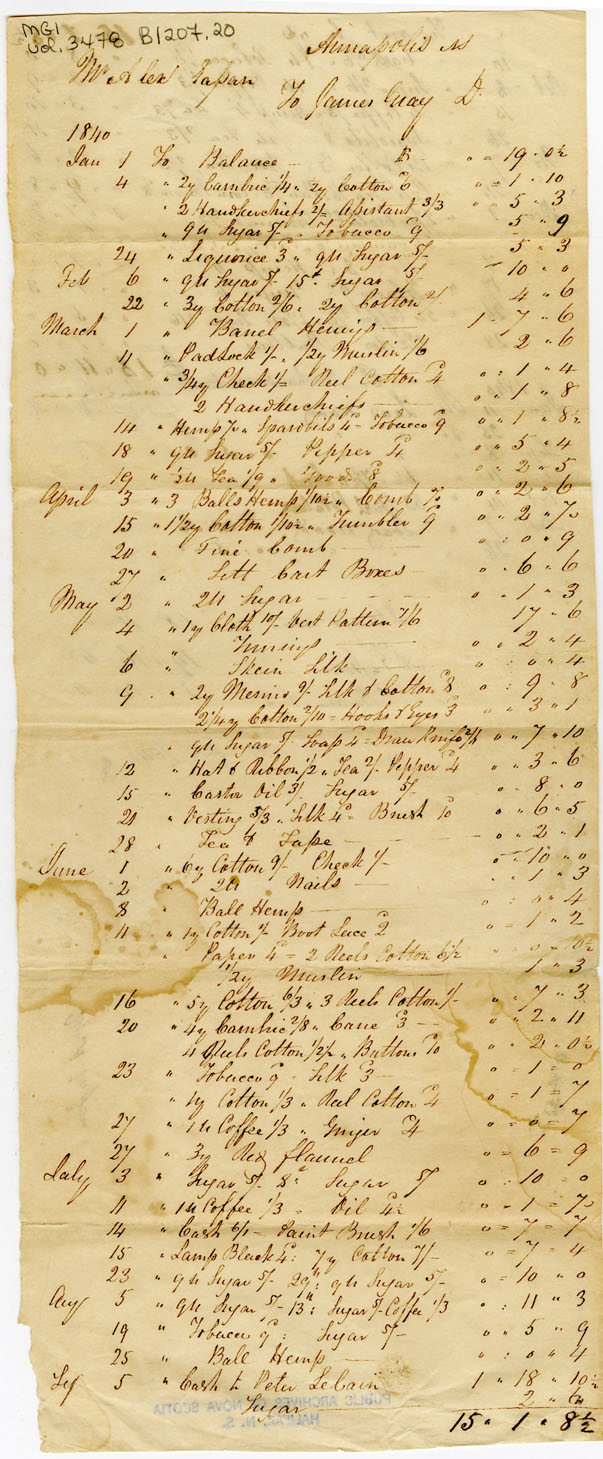 MG1
Vol. 3478 B1207.20
Annapolis NS
Mr Alex Tapan
To James Gray Dr
1840
Jan 1 To Balance — £ " = 19 . 0½
4 " 2y Cambric 1/4 " 2y Cotton /6 " = 1 . 10
" 2 Handkerchiefs 2/- Assistant 3/3 " = 5 " 3
" 9 lb Sugar 5/- " Tobacco /9 5 " 9
24 " Liquorice 3d " 9 lb Sugar 5/- 5 " 3
Feb 6 " 9 lb Sugar 5/- 15th Sugar 5/- 10 " 0
22 " 3y Cotton 2/6 " 2y Cotton 2/ 4 " 6
March 1 " Barrel Herrings — 1 - 7 " 6
11 " Pad Lock 1/- " 1/2y Muslin 1/6 2 " 6
" 3/4y Check 1/- Reel Cotton /4 " : 1 " 4
2 Handkerchiefs — " " 1 " 8
14 " Hemp " Sparbils 4d - Tobacco /9 " " 1 " 8½
18 " 9 lb Sugar 5/- Pepper /4 " " 5 " 4
19 " ½ lb Tea 1/9 " Goods /8 " " 2 " 5
April 3 " 3 Balls Hemp 1/10½ " Comb " = 2 " 6
15 " 1 1/2y Cotton 1/10½ " Tumbler /9 " " 2 " 7½
20 " Fine Comb — " : 0 " 9
27 " Sett Cart Boxes — " " 6 " 6
May 2 " 2 lb Sugar — " " 1 " 3
4 " 1y Cloth 10/- Vest Pattern 7/6 17 " 6
" Trimings — " " 2 " 4
6 " Skein Silk — " : 0 " 4
9 " 2y Merino 9/- Silk & Cotton /8 " : 9 " 8
2 1/4y Cotton 2/10 = Hooks & Eyes /3 " " 3 " 1
" 9 lb Sugar 5/- Soap 4d = Draw Knife 2/6 " " 7 " 10
12 " Hat & Ribbon 1/2 " Tea 2/- Pepper /4 " " 3 " 6
15 " Castor Oil 3/- Sugar 5/- " " 8 " 0
20 " Vesting 5/3 " Silk 4d = Brush /10 " " 6 " 5
28 " Tea & Tape — " " 2 " 1
June 1 " 6y Cotton 9/- Check 1/- " - 10 " 0
2 " 2 lb Nails — " . 1 " 3
8 " Ball Hemp — " : 0 " 4
11 " 1y Cotton 1/- Boot Lace /2 " = 1 " 2
" Paper 4d = 2 Reels Cotton 6½ " " 0 " 10½
1/2y Muslin 1 " 3
16 " 5y Cotton 6/3 " 3 Reels Cotton 1/- " " 7 " 3
20 " 4y Cambric 2/8 " Cane /3 — " " 2 " 11
4 Reels Cotton 1/2½ " Buttons /10 " " 2 " 0½
23 " Tobacco /9 - Silk /3 — " = 1 = 0
" 1y Cotton 1/3 " Reel Cotton /4 " = 1 = 7
27 " 1 lb Coffee 1/3 " Ginger /4 " = " = 7
27 " 3y Red flannel " = 6 = 9
July 3 " Sugar 5/- 8th Sugar 5/ " : 10 = 0
11 " 1 lb Coffee 1/3 = Oil 4½ " = 1 = 7½
14 " Cash 6/1 - Paint Brush 1/6 " = 7 = 7
15 " Lamp Black 4d : 7y Cotton 7/- " = 7 = 4
23 " 9 lb Sugar 5/- 29th : 9 lb Sugar 5/- " = 10 " 0
Aug 5 " 9 lb Sugar 5/- 13th : Sugar 5/- Coffee 1/3 " : 11 " 3
19 " Tobacco /9 : Sugar 5/- " " 5 " 9
25 " Ball Hemp — " : 0 " 4
Sep 5 " Cash to Peter LeCain 1 " 18 " 10½
Sugar 2 " 6
15 " 1 " 8½
PUBLIC ARCHIVES NOVA SCOTIA
HALIFAX, N. S.